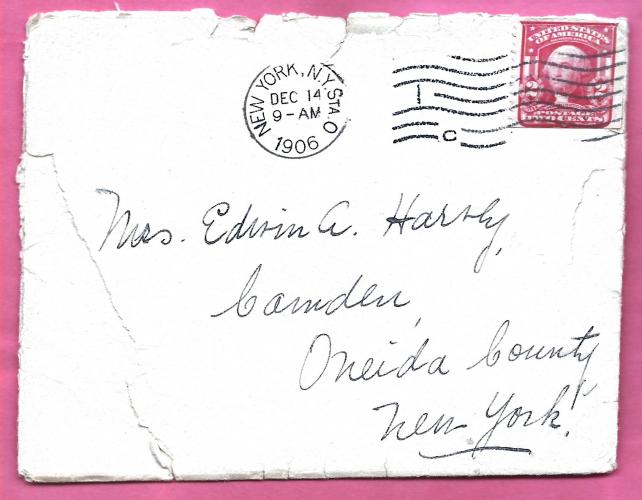 NEW YORK, N.Y. STA. O
DEC 14
9-AM
1906
1
C
UNITED STATES
OF AMERICA
2 2
POSTAGE
TWO CENTS
Mrs. Edwin A. Harvey,
Camden,
Oneida County,
New York.